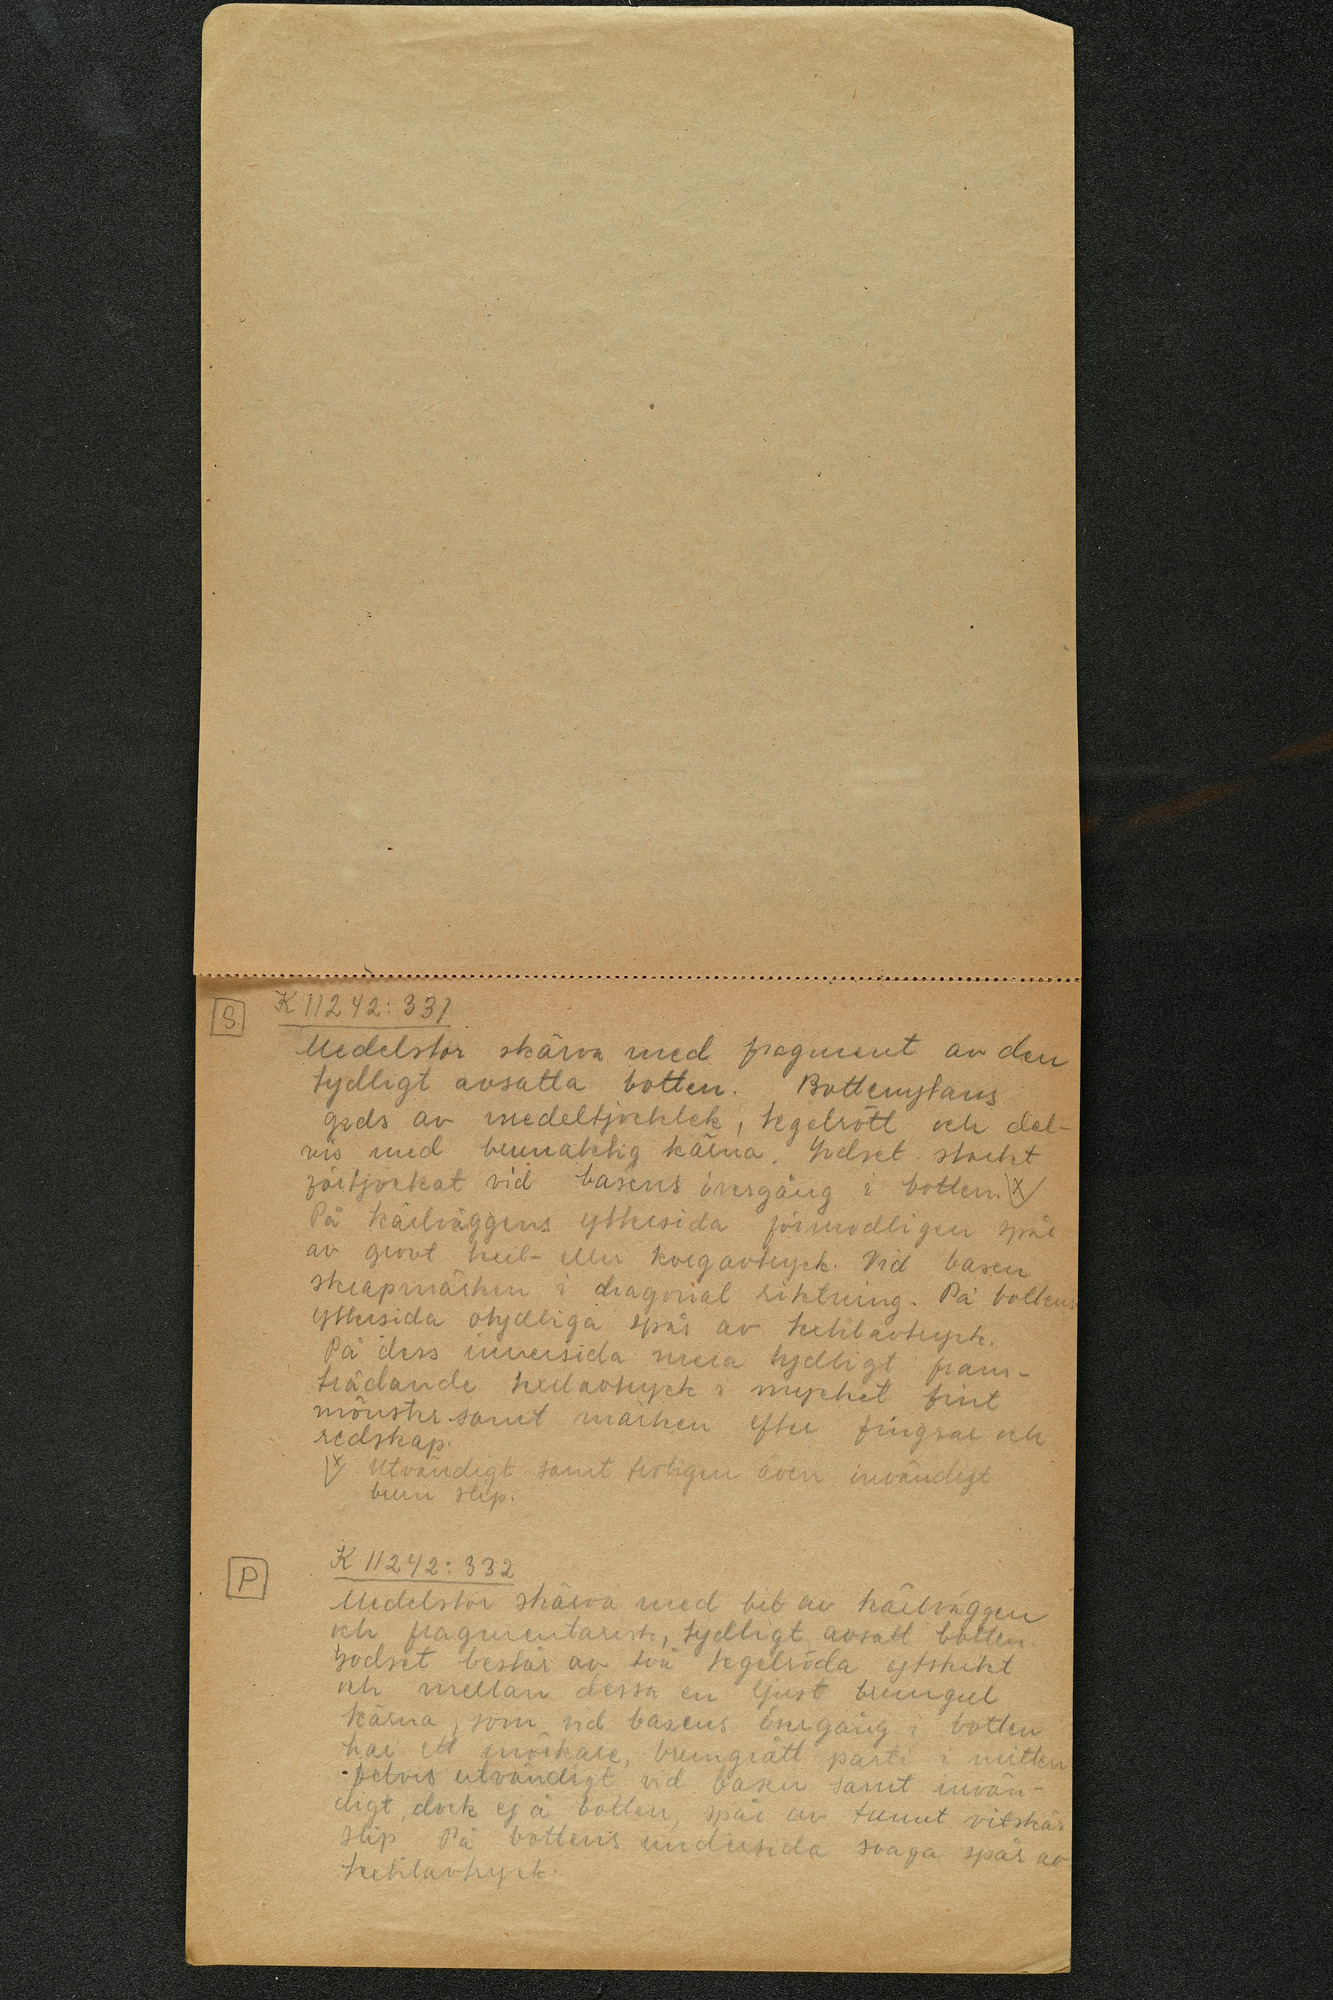 S. K 11242:331
Medelstor skärva med fragment av den
tydligt avsatta botten. Bottenytans
gods av medeltjocklek, tegelrött och del-
vis med brunaktig kärna. Godset starkt
förtjockat vid basens övergång i botten. x/
På kärlväggens yttersida förmodligen spår
av grovt textil- eller korgavtryck. Vid basen
skrapmärken i diagonal riktning. På bottens
yttersida otydliga spår av textilavtryck.
På dess innersida mera tydligt fram-
trädande textilavtryck i mycket fint
mönster samt märken efter fingrar och
redskap.
x/ Utvändigt samt troligen även invändigt
brun slip.
P K 11242:332
Medelstor skärva med bit av kärlväggen
och fragmentarisk, tydligt avsatt botten.
Godset består av två tegelröda ytskikt
och mellan dessa en ljust brungul
kärna, som vid basens övergång i botten
har ett mörkare, brungrått parti i mitten
Delvis utvändigt vid basen samt invän-
digt, dock ej å botten, spår av tunnt vitskär
slip På bottens undersida svaga spår av
textilavtryck.